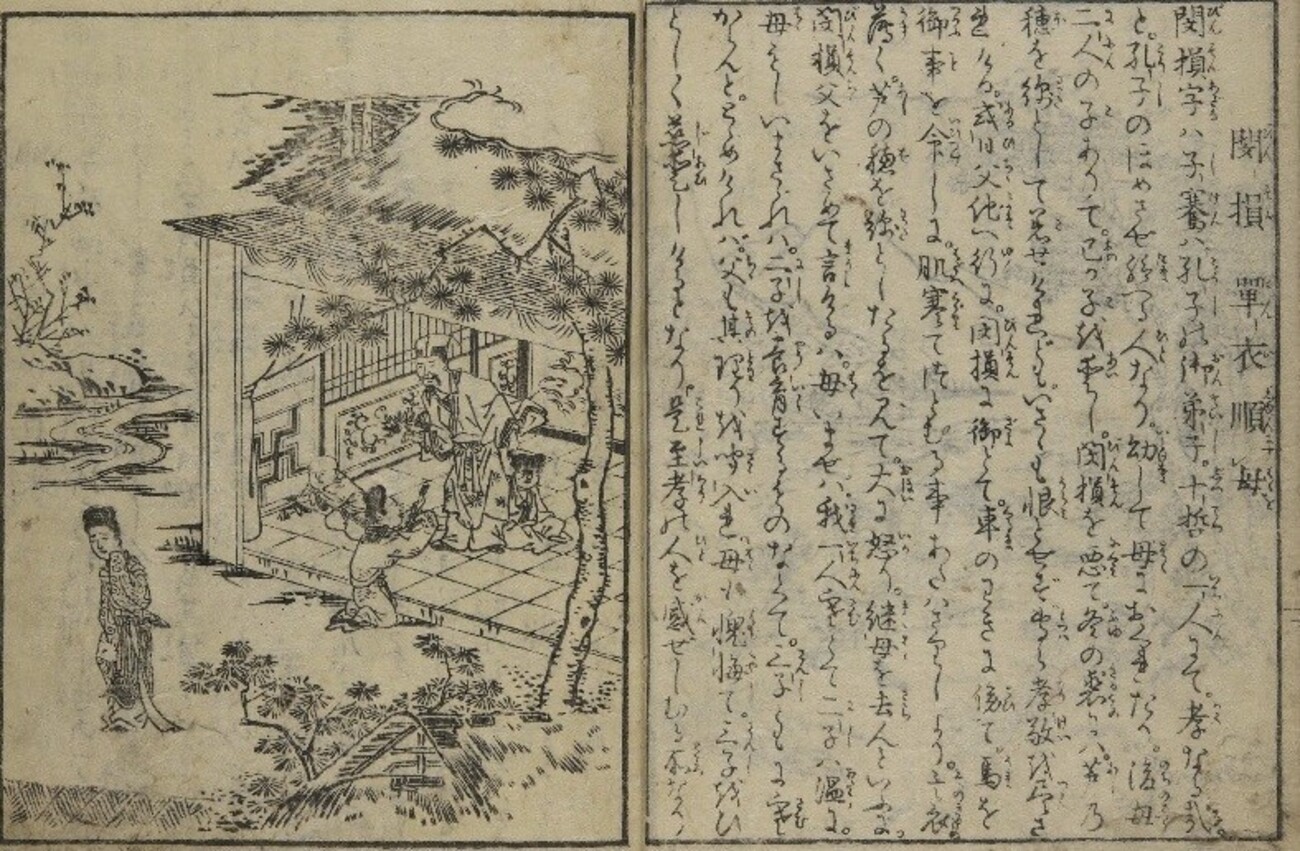 閔損單衣順母
閔損字ハ子騫ハ孔子の御弟子。十哲の一人にて。孝なるかな
と。孔子のほめさせ給ふ人なり。幼して母におくれたり。後母
二人の子ありて。己が子を愛し。閔損を悪て。冬の裘にハ。芦乃
穂を綿として着せけれども。いさゝも恨とせず。孝敬を尽さ
れける。或日父他へ行に。閔損に御として。車のわきに傍て。馬を
御事を令しに。肌寒て
薄く。芦の穂を綿としたるを見て。大に怒り。継母を去人といふ。
閔損父をいさめて言けるハ。母いませハ。我一人寒くて二子ハ温に。
母もしいまさゞれハ。二子を養育するものなくて。三子ともに寒
からんと。とゞめけれバ。父も其理を聞入レ母も愧悔て。三子をひ
としく慈愛しけるとなり。是至孝の人を感ぜしむる所なり